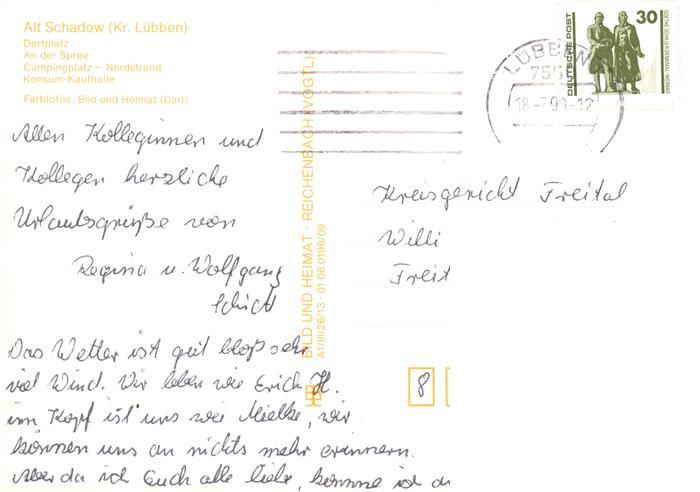 Alt Schadow (Kr. Lübben)
Dorfplatz
An der Spree
Campingplatz – Nordstrand
Konsum-Kaufhalle
Farbfotos: Bild und Heimat (Darr)
Allen Kolleginnen und
Kollegen herzliche
Urlaubsgrüße von
Regina u. Wolfgang
Das Wetter ist gut bloß sehr
viel Wind. Wir leben wie Erich H.
im Kopf ist uns wie Mielke, wir
können uns an nichts mehr erinnern.
Aber da ich Euch alle liebe, komme ich
BILD UND HEIMAT · REICHENBACH (VOGTL)
A1/III/26/13 · 01 06 0196/09
DEUTSCHE POST
30
LÜBBEN
18.-7.90-12
Kreisgericht Freital
Willi
Freit
8